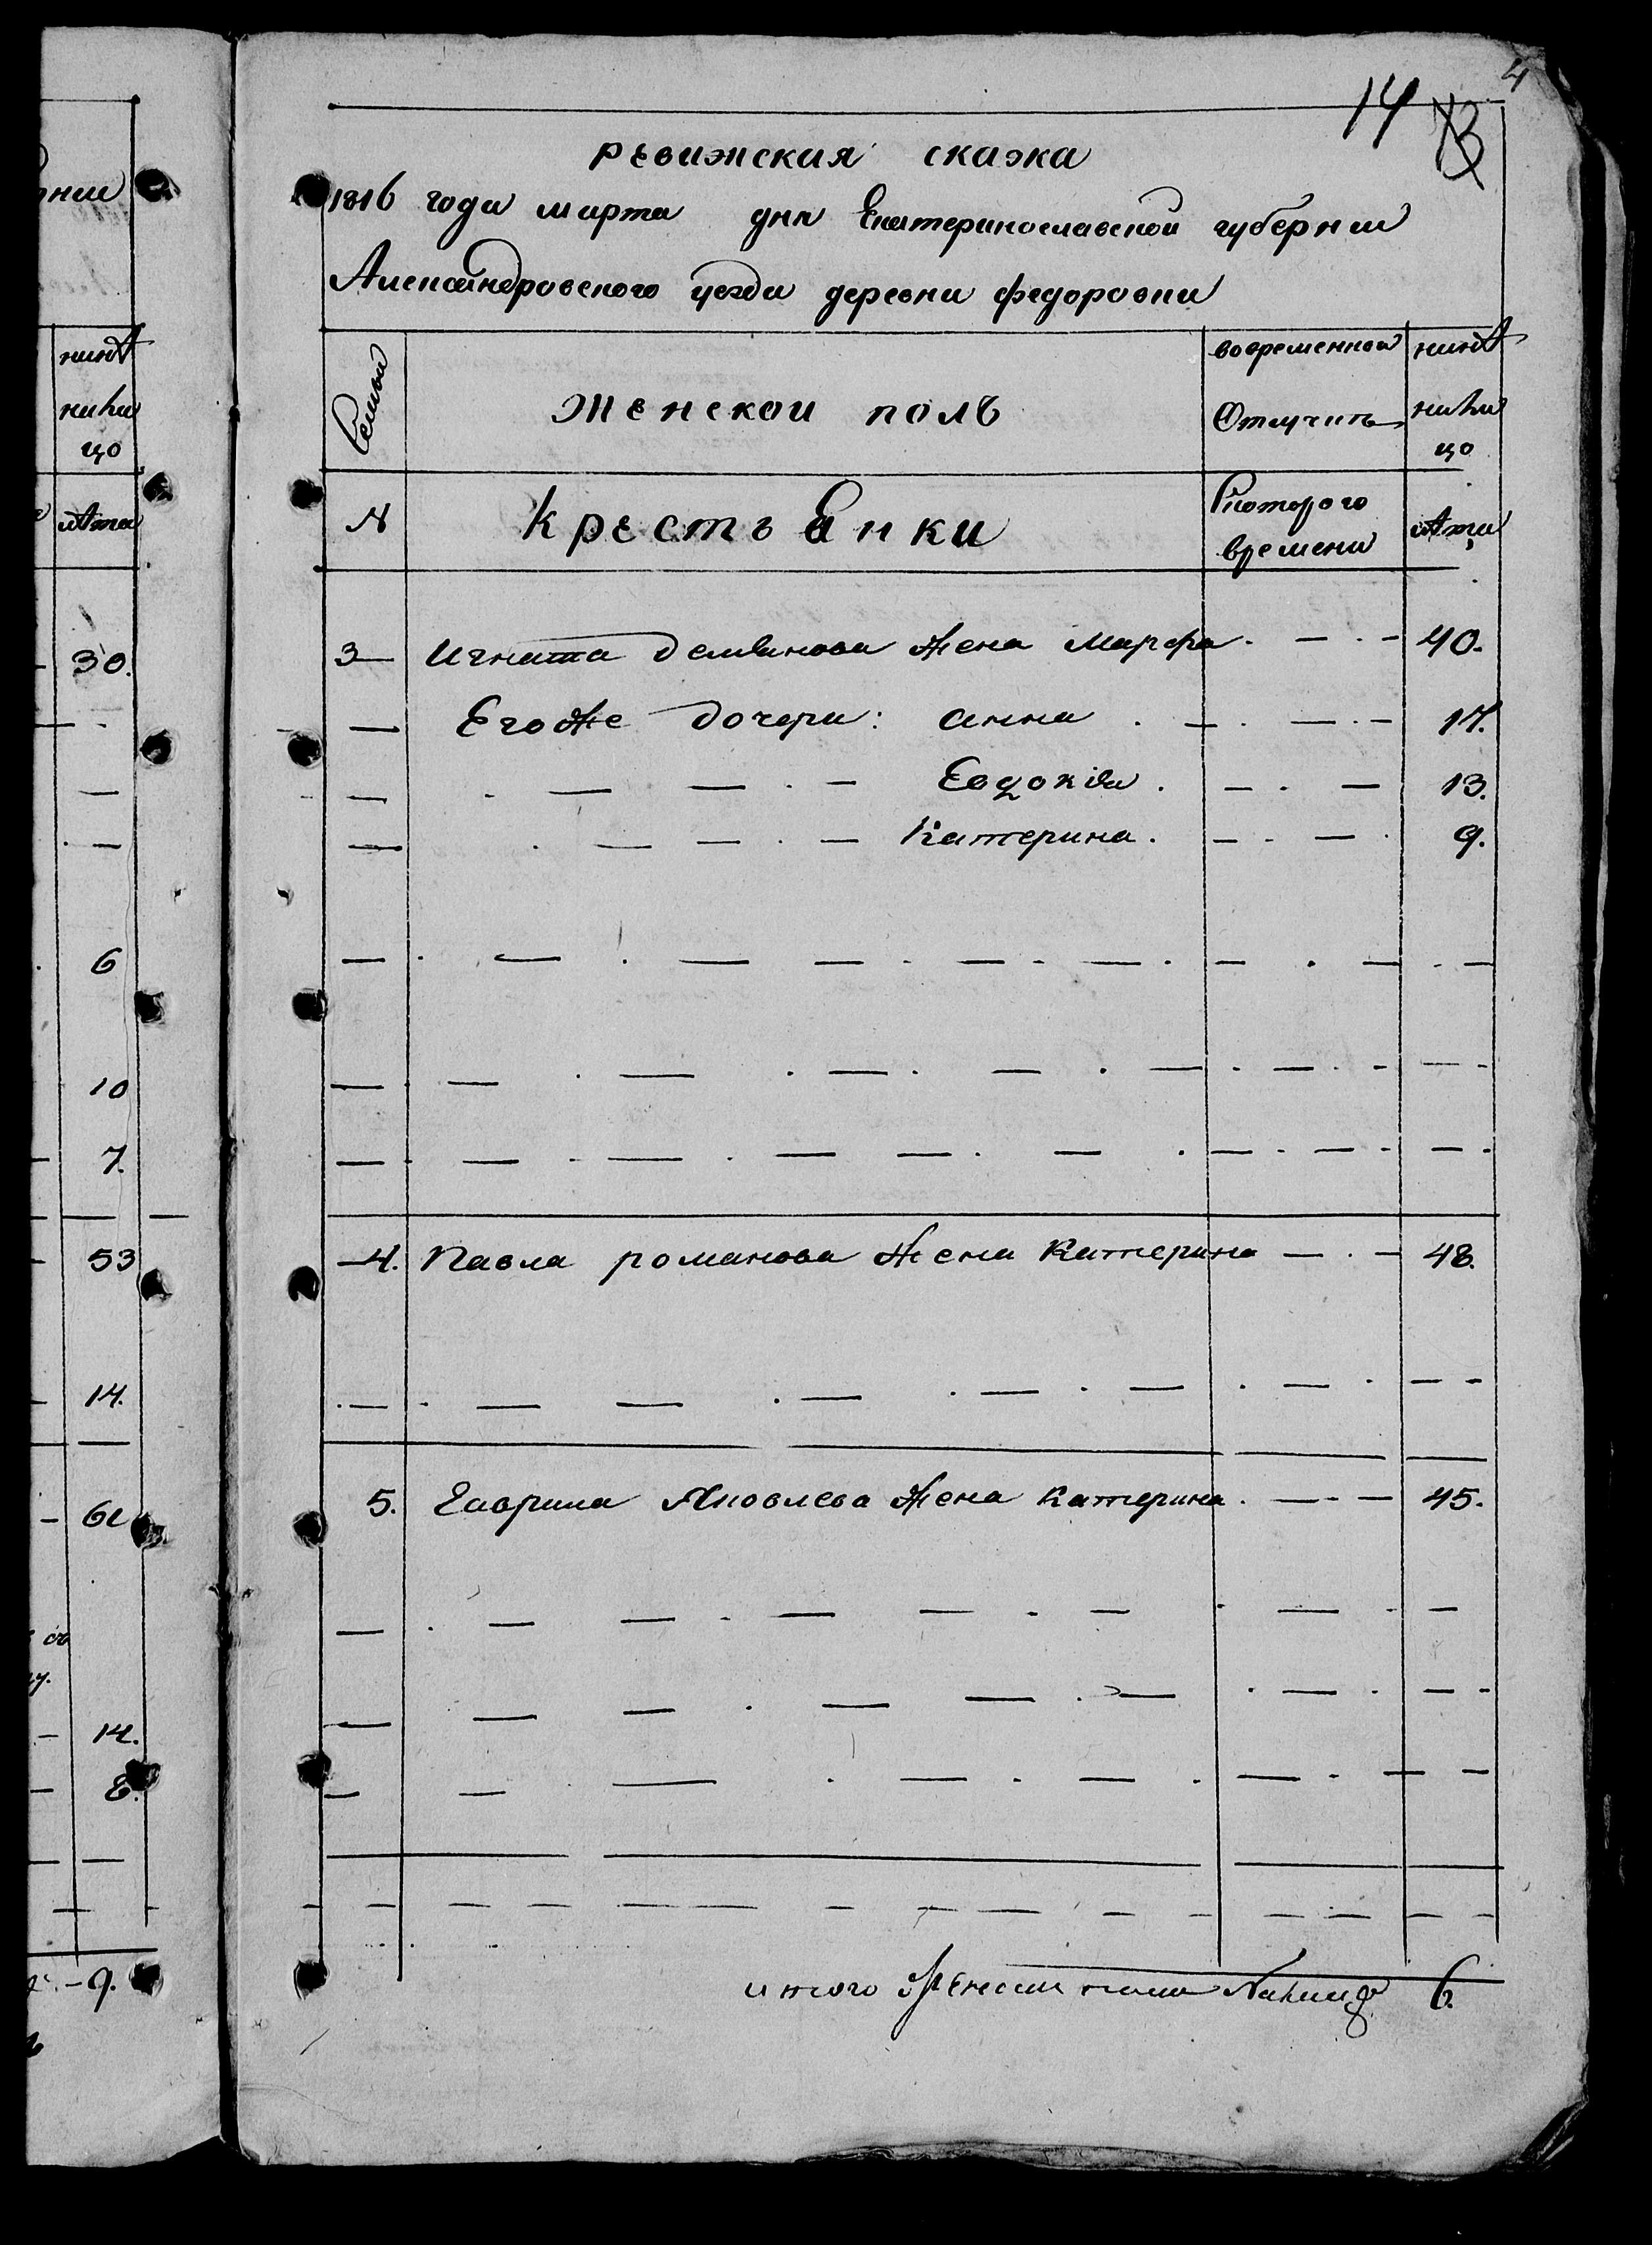 4
14 13
ревижская сказка
1816 года марта дня Екатеринославской губернии
Александровского уезда деревни федоровки
Семьи
женской полъ
вовременной Отлучкѣ
нынѣ налицо
№
крестьянки
Скоторого времени
лѣта
3 Игната демьянова жена Марфа 40.
Егоже дочери: анна 17.
Евдокія 13.
Катерина 9.
4. Павла романова жена Катерина 48.
5. Гаврила Яковлева жена Катерина 45.
итого женска пола налицо 6.
нии
нынѣ
нали
цо
лѣта
30.
6
10
7.
53
14.
14.
8.
9.